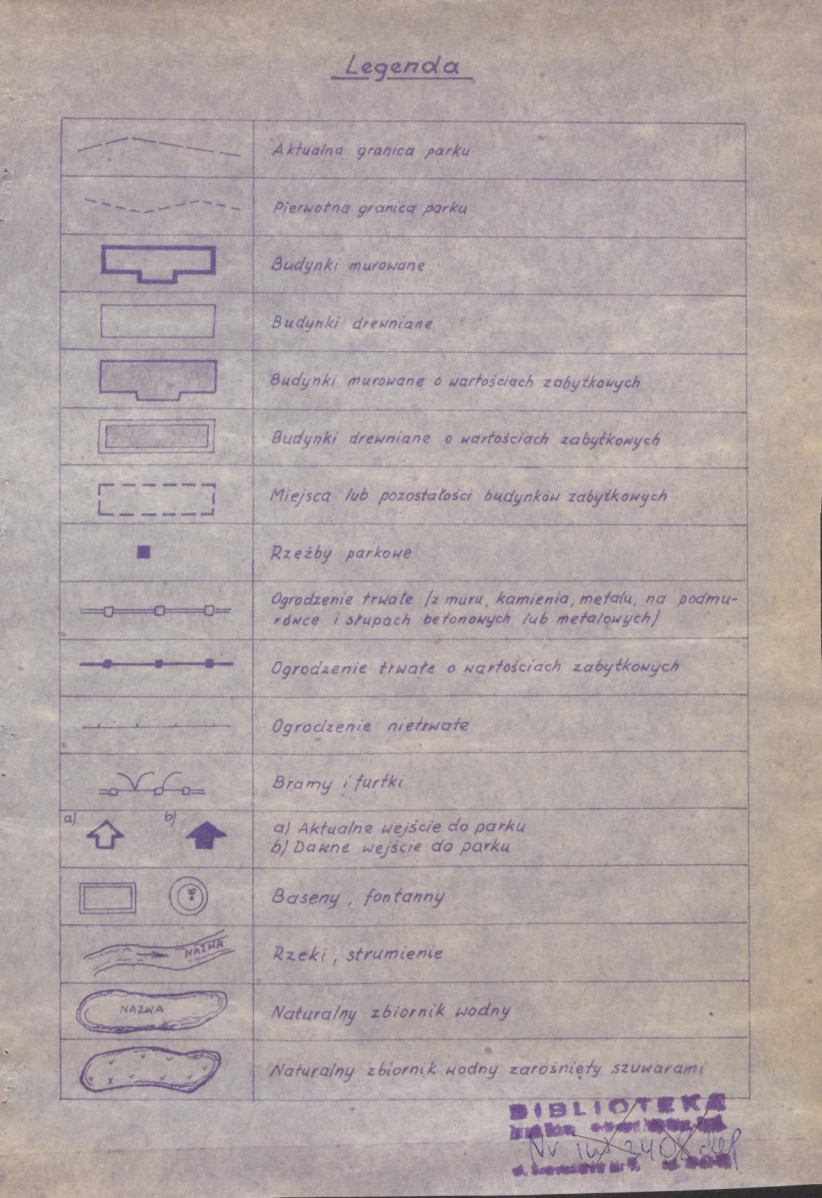 Legenda
Aktualna granica parku
Pierwotna granica parku
Budynki murowane
Budynki drewniane
Budynki murowane o wartościach zabytkowych
Budynki drewniane o wartościach zabytkowych
Miejsca lub pozostałości budynków zabytkowych
Rzeźby parkowe
Ogrodzenie trwałe /z muru, kamienia, metalu, na podmu-
rówce i słupach betonowych lub metalowych/
Ogrodzenie trwałe o wartościach zabytkowych
Ogrodzenie nietrwałe
Bramy i furtki
a) b)
a) Aktualne wejście do parku
b) Dawne wejście do parku
Baseny, fontanny
NAZWA
Rzeki, strumienie
NAZWA
Naturalny zbiornik wodny
Naturalny zbiornik wodny zarośnięty szuwarami
BIBLIOTEKA
Nr inw